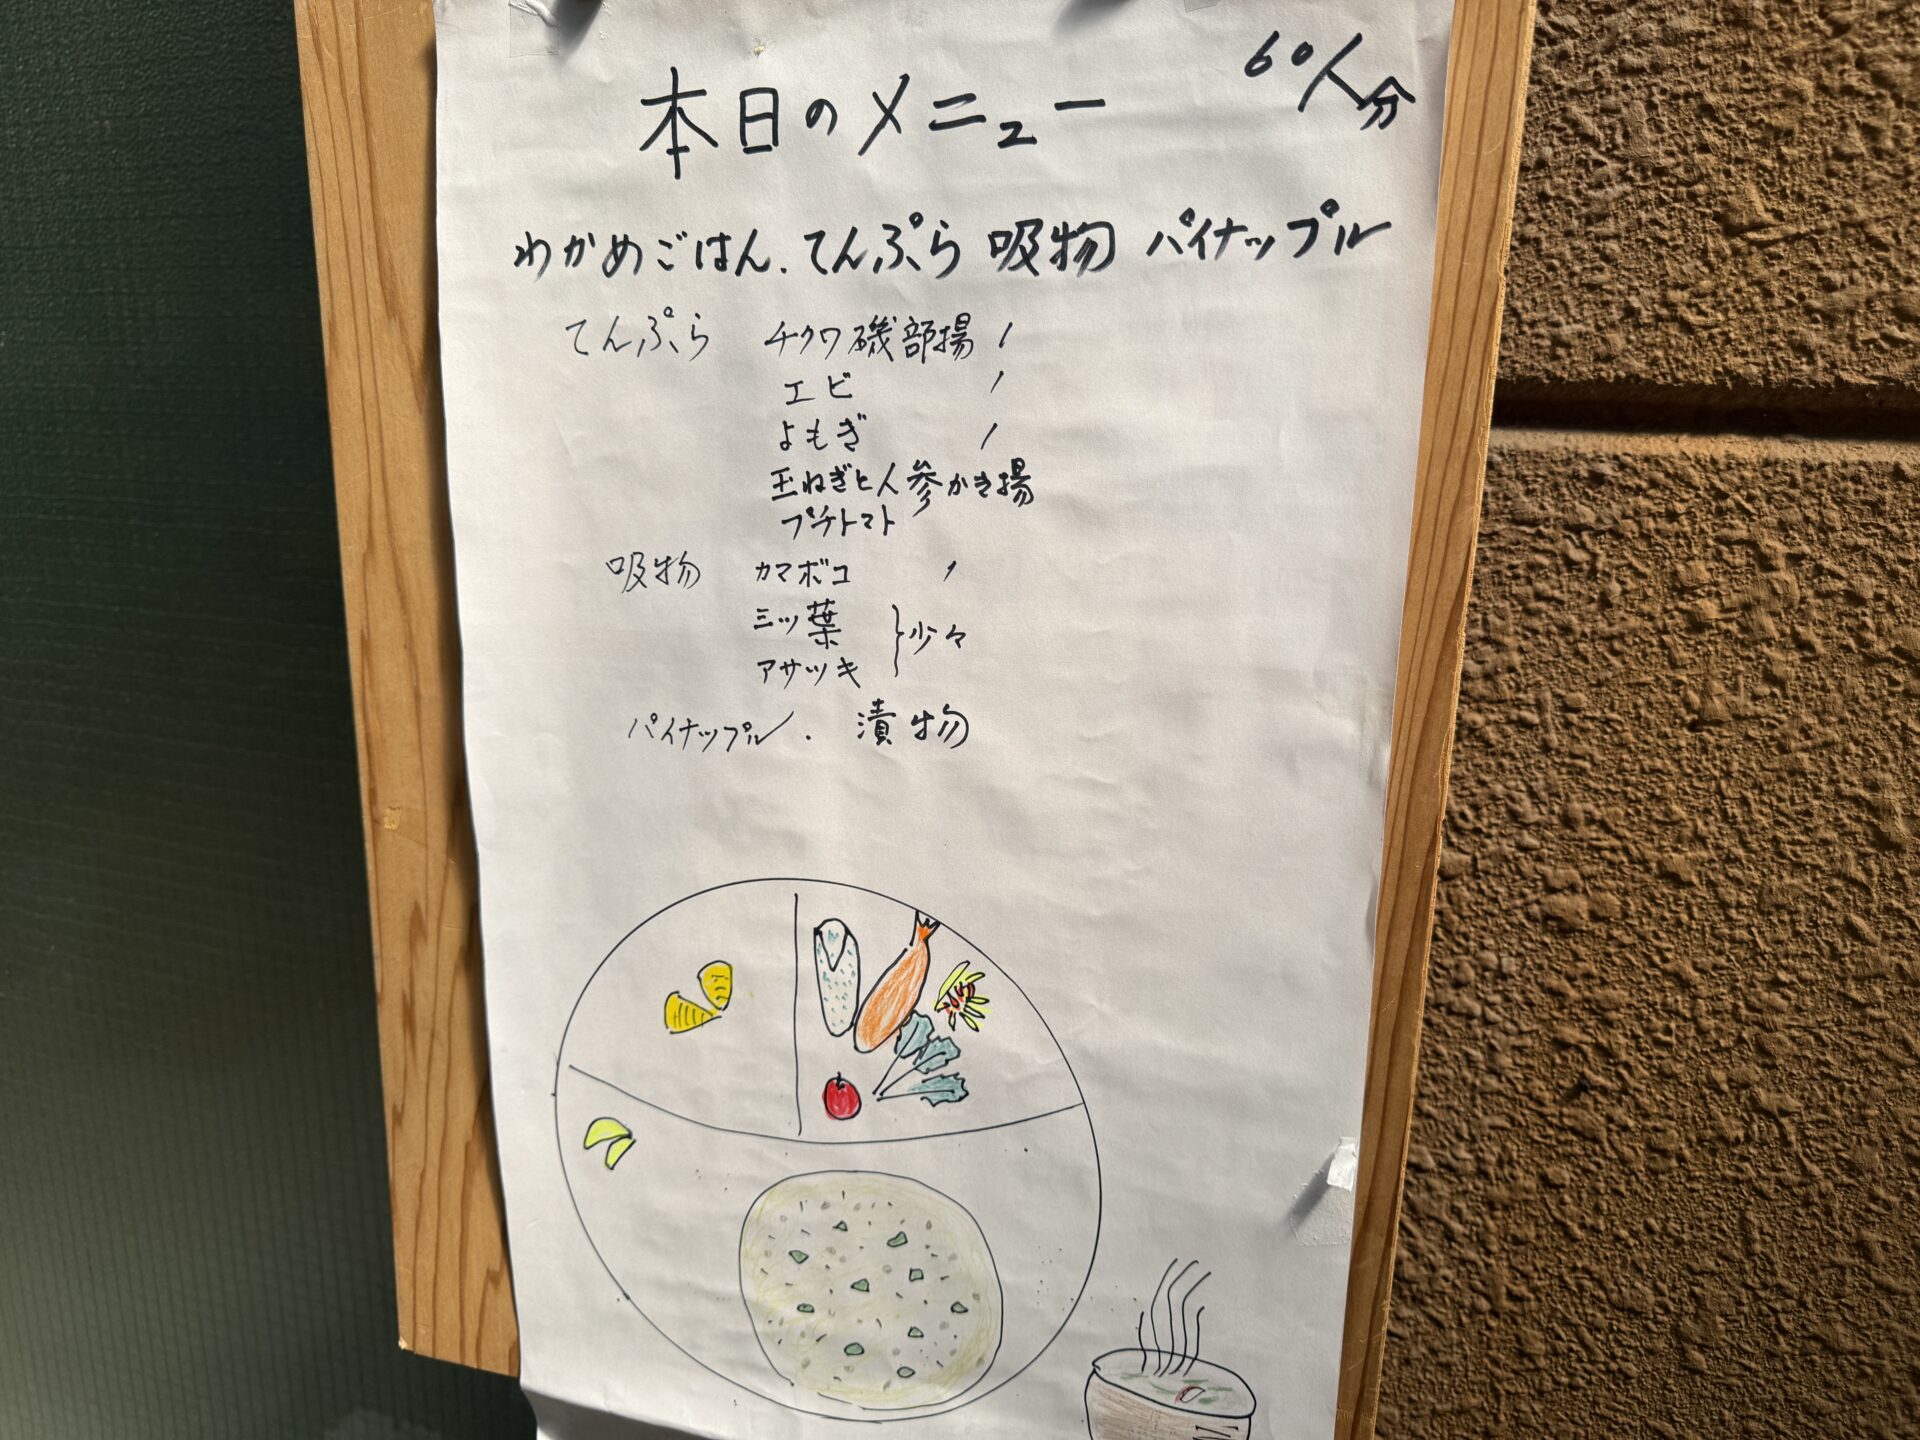 60人分
本日のメニュー
わかめごはん.てんぷら 吸物 パイナップル
てんぷら チクワ磯部揚 1
エビ 1
よもぎ 1
玉ねぎと人参かき揚
プチトマト
吸物 カマボコ 1
三ツ葉
アサツキ } 少々
パイナップル . 漬物